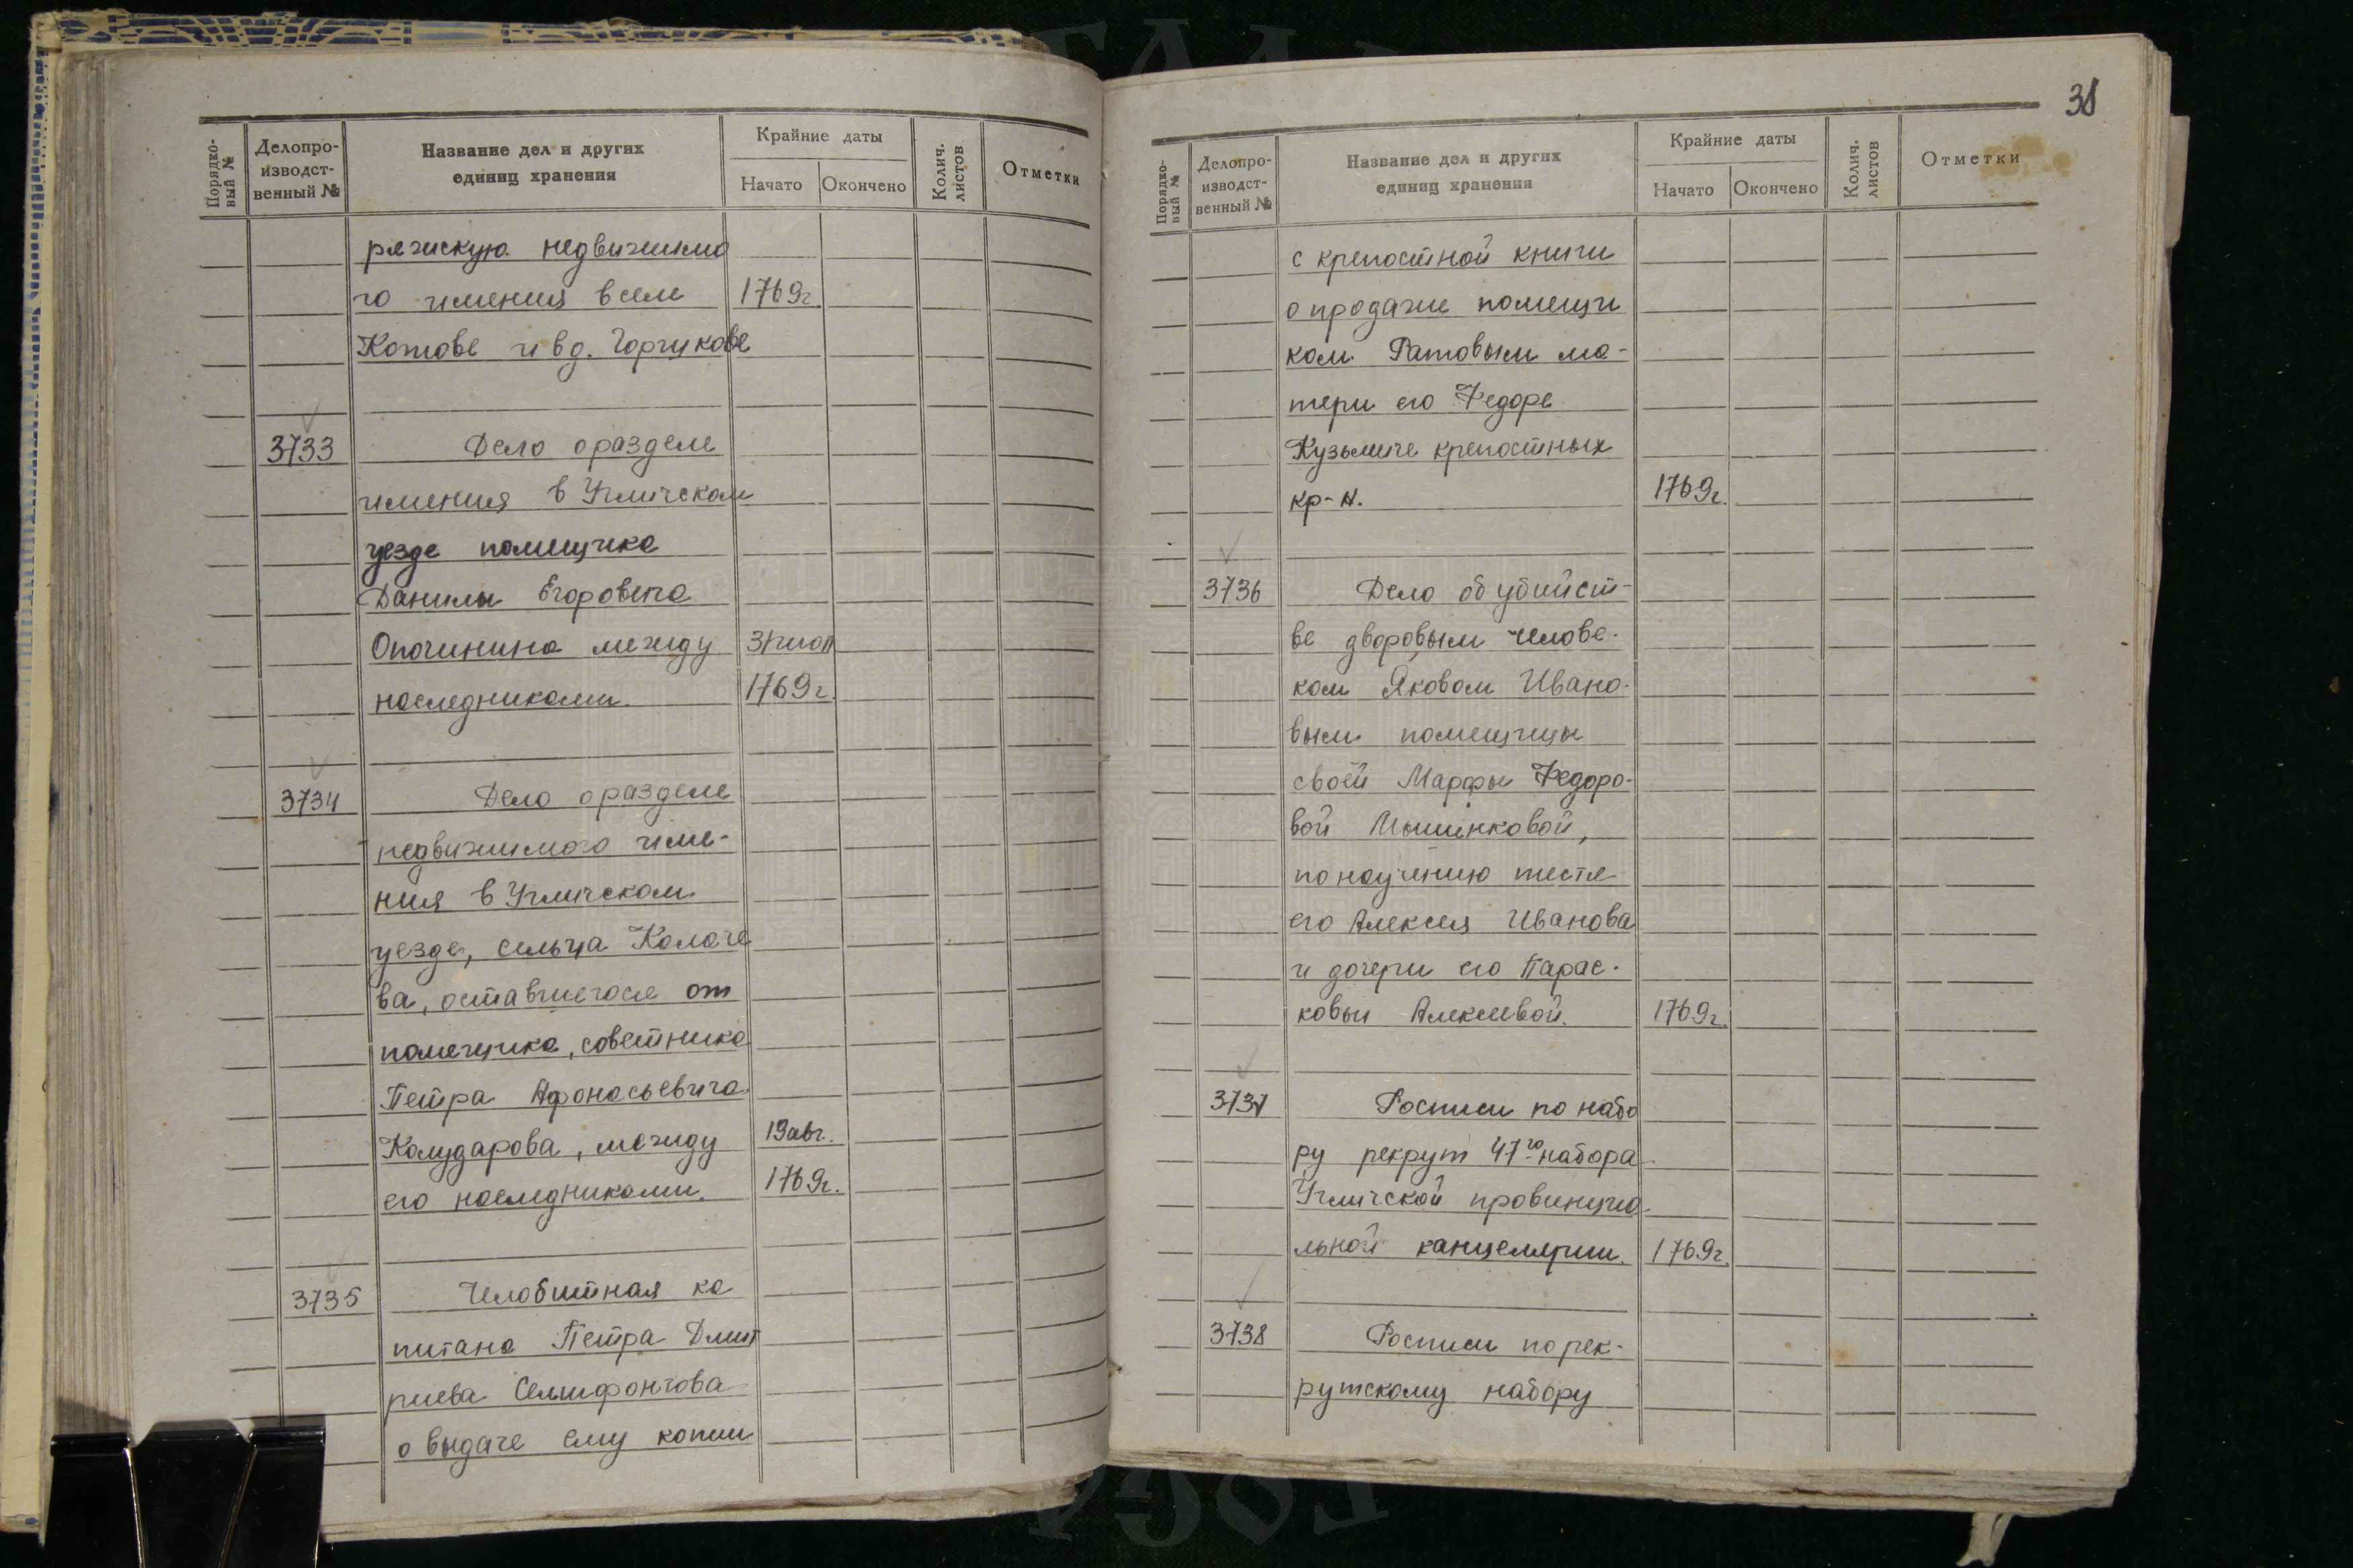 Порядко-
вый №
Делопро-
изводст-
венный №
Название дел и других
единиц хранения
Крайние даты
Начато
Окончено
Колич.
листов
Отметки
ряжскую недвижимо
го имения в селе 1769г.
Котове и в д.
3733 Дело о разделе
имения в Угличском
уезде помещика
Данилы Егоровича
Опочинина между
наследниками. 1769г.
3734 Дело о разделе
недвижимого име-
ния в Угличском
уезде, сельца Калаче
ва, оставшегося от
помещика, советника
Петра Афонасьевича
Кожударова, между 19 авг.
его наследниками. 1769г.
3735 Челобитная ка
питана Петра Дмит
риева Селифонтова
о выдаче ему копии
38
Порядко-
вый №
Делопро-
изводст-
венный №
Название дел и других
единиц хранения
Крайние даты
Начато
Окончено
Колич.
листов
Отметки
с крепостной книги
о продаже помещи
ком Ратовым ма-
тери его Федоре
Кузьмиче крепостных
кр-н. 1769г.
3736 Дело об убийст-
ве дворовым челове-
ком Яковом Ивано-
вым помещицы
своей Марфы Федоро-
вой
по научению тестя
его Алексея Иванова
и дочери его Парас-
ковьи Алексеевой. 1769г.
3737 Росписи по набо
ру рекрут 47го набора
Угличской провинциа
льной канцелярии. 1769г.
3738 Росписи по рек-
рутскому набору